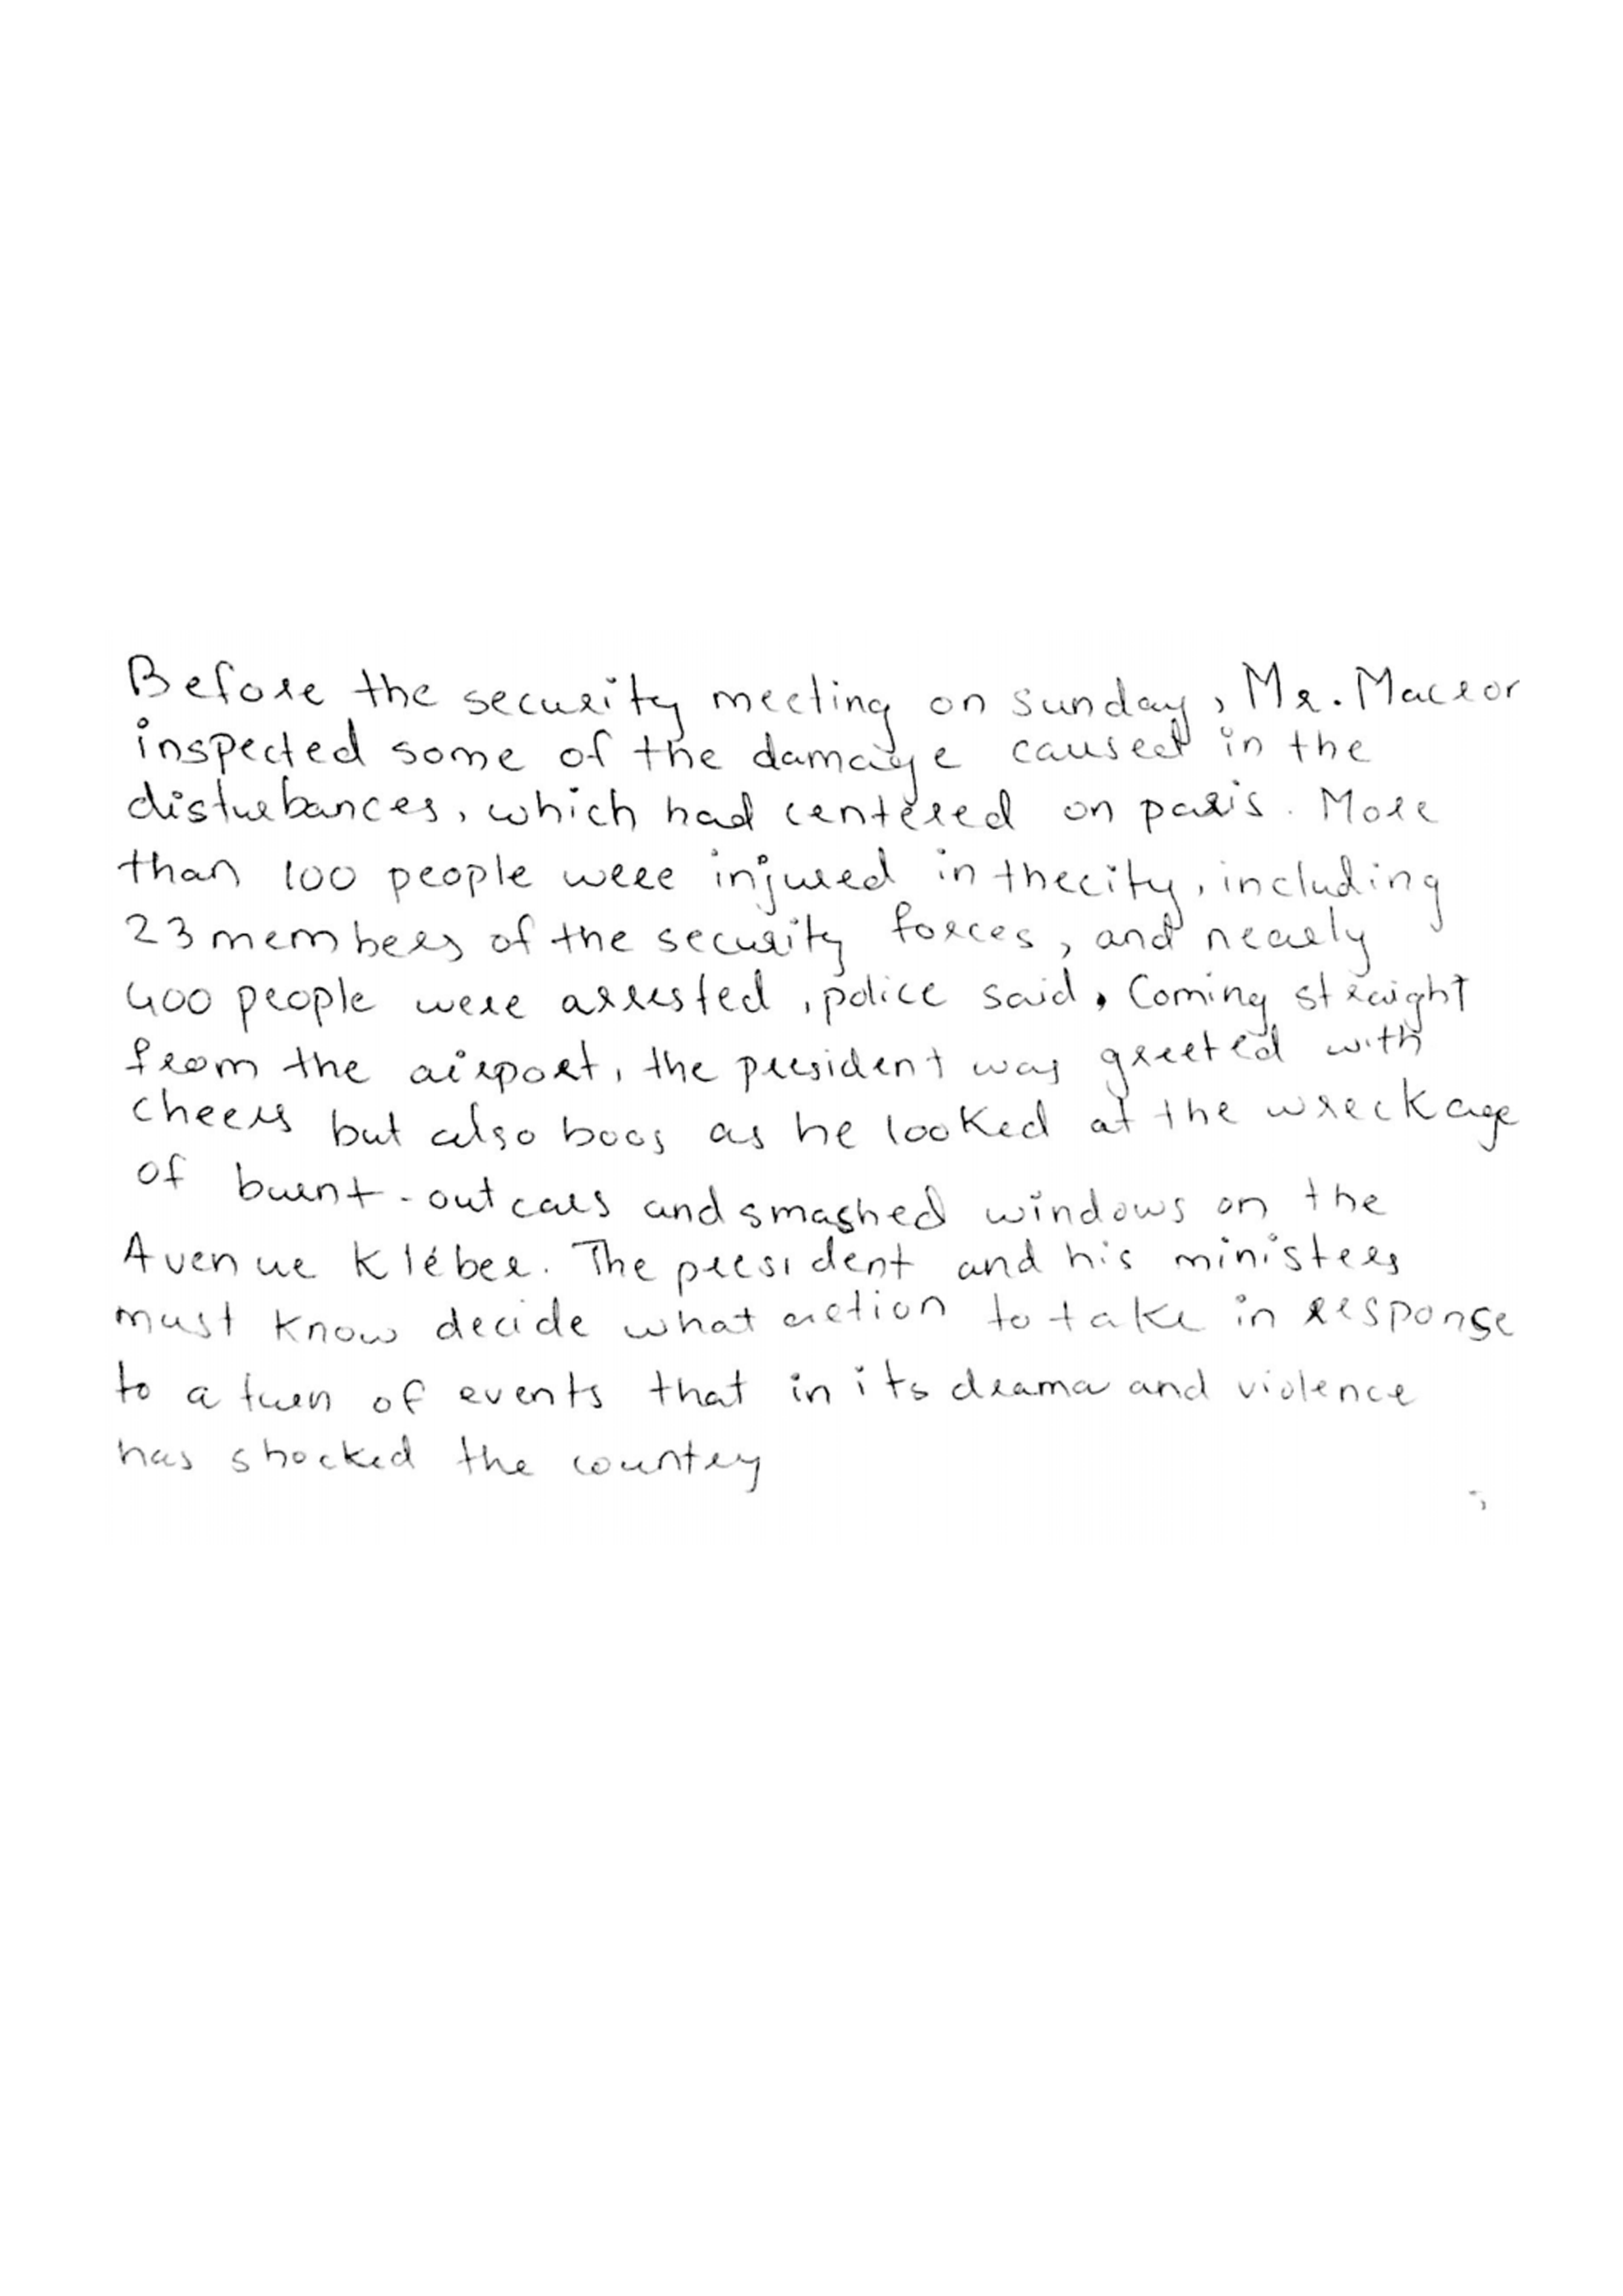 Before the security meeting on sunday, Mr. Macror
inspected some of the damage caused in the
disturbances, which had centered on paris. More
than 100 people were injured in the city, including
23 members of the security forces, and nearly
400 people were arrested, police said. Coming straight
from the airport, the president was greeted with
cheers but also boos as he looked at the wreckage
of burnt-out cars and smashed windows on the
Avenue Kléber. The president and his ministers
must know decide what action to take in response
to a turn of events that in its drama and violence
has shocked the country